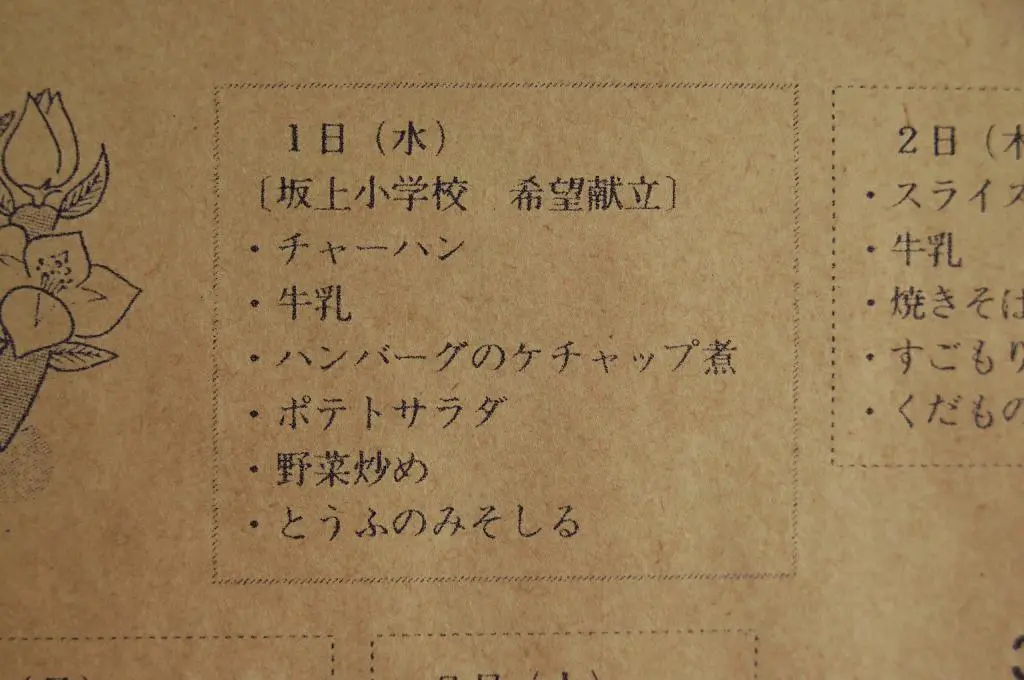 1日(水)
〔坂上小学校 希望献立〕
・チャーハン
・牛乳
・ハンバーグのケチャップ煮
・ポテトサラダ
・野菜炒め
・とうふのみそしる
2日(木
・スライス
・牛乳
・焼きそば
・すごもり
・くだもの